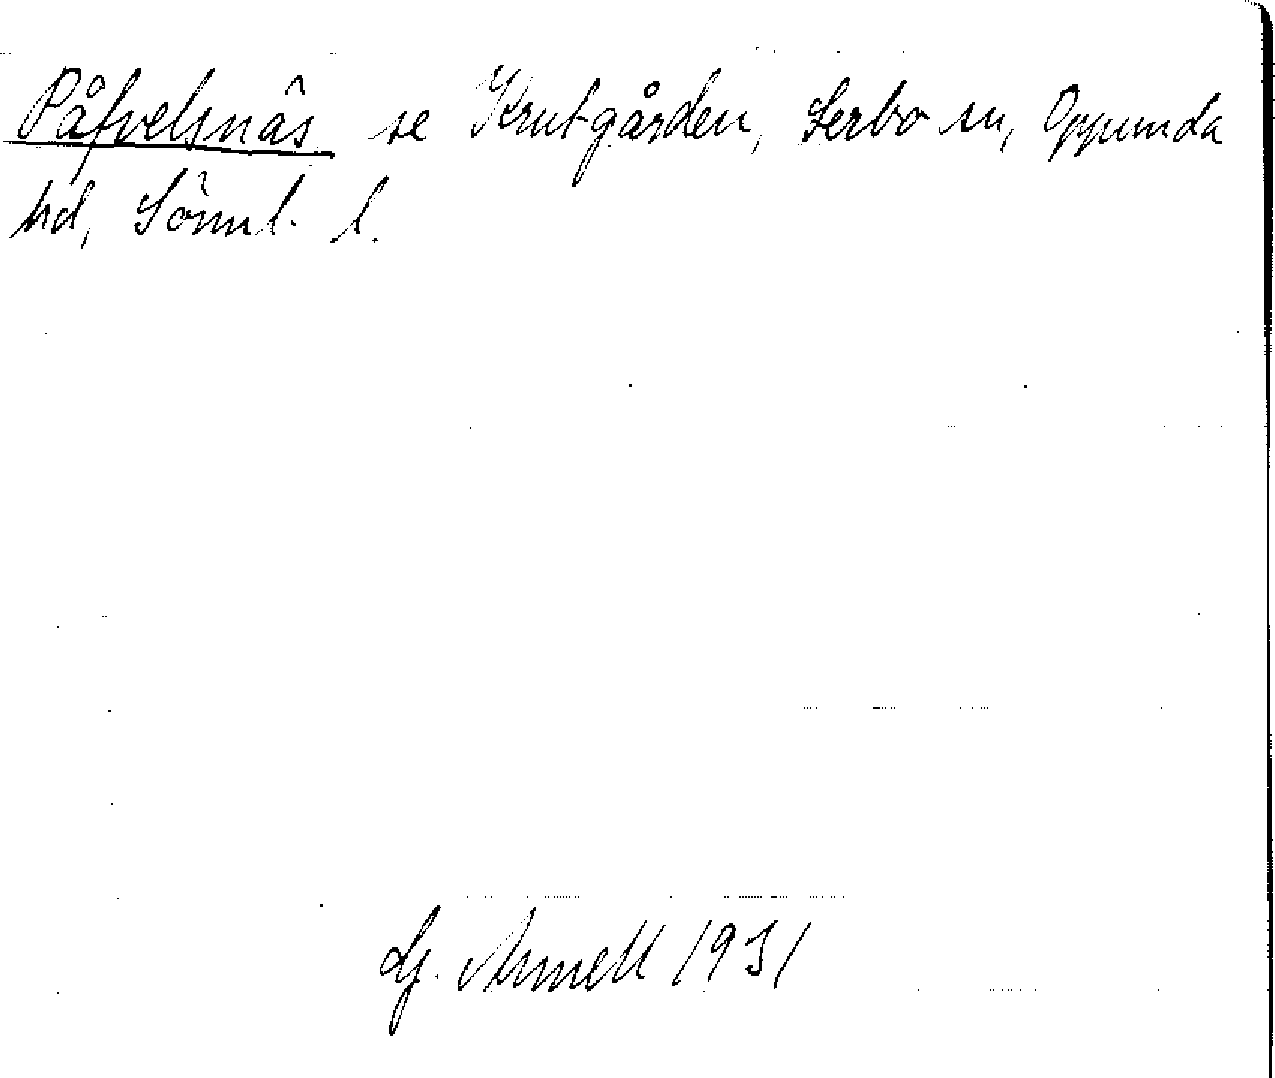 Påfvelsnäs se Krutgården, Lerbo sn, Oppunda
hd, Sörml. l.
Lg. Arnell 1931